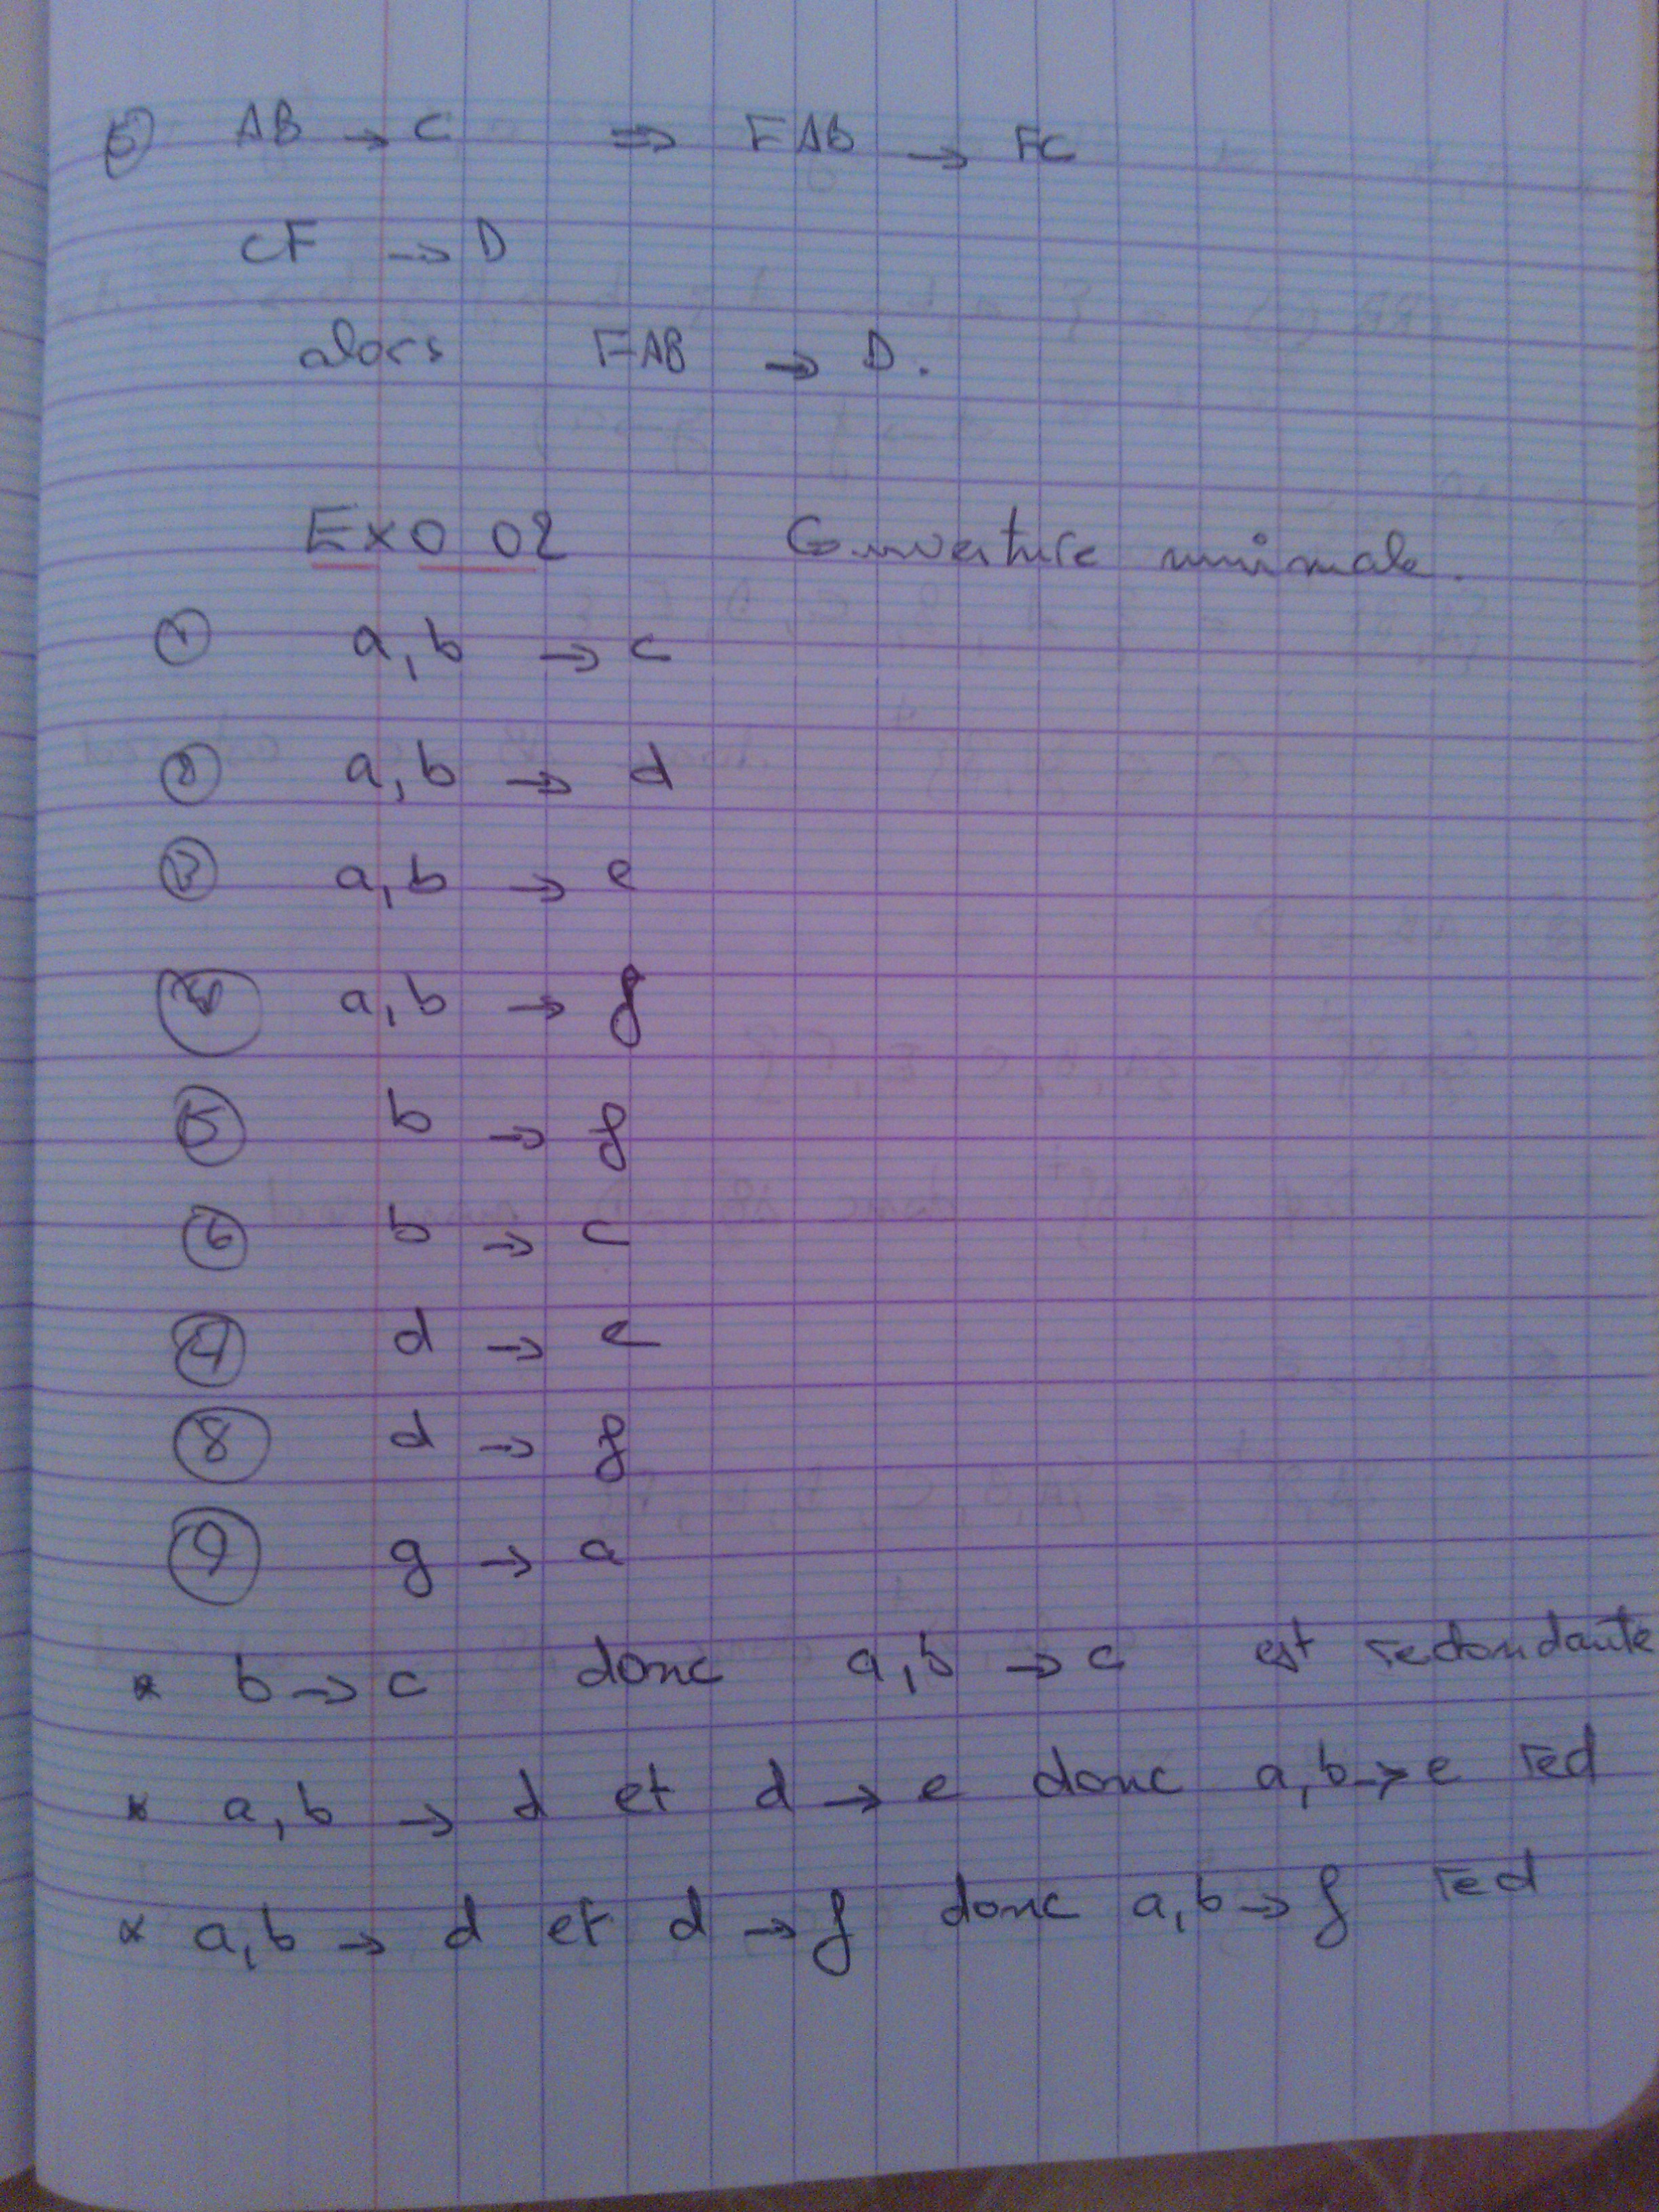 ⑤ AB → C ⇒ FAB → FC
CF → D
alors FAB → D.
Exo 02 Couverture minimale.
① a,b → c
② a,b → d
③ a,b → e
④ a,b → f
⑤ b → f
⑥ b → c
⑦ d → e
⑧ d → f
⑨ g → a
* b → c donc a,b → c est redondante
* a,b → d et d → e donc a,b → e red
* a,b → d et d → f donc a,b → f red